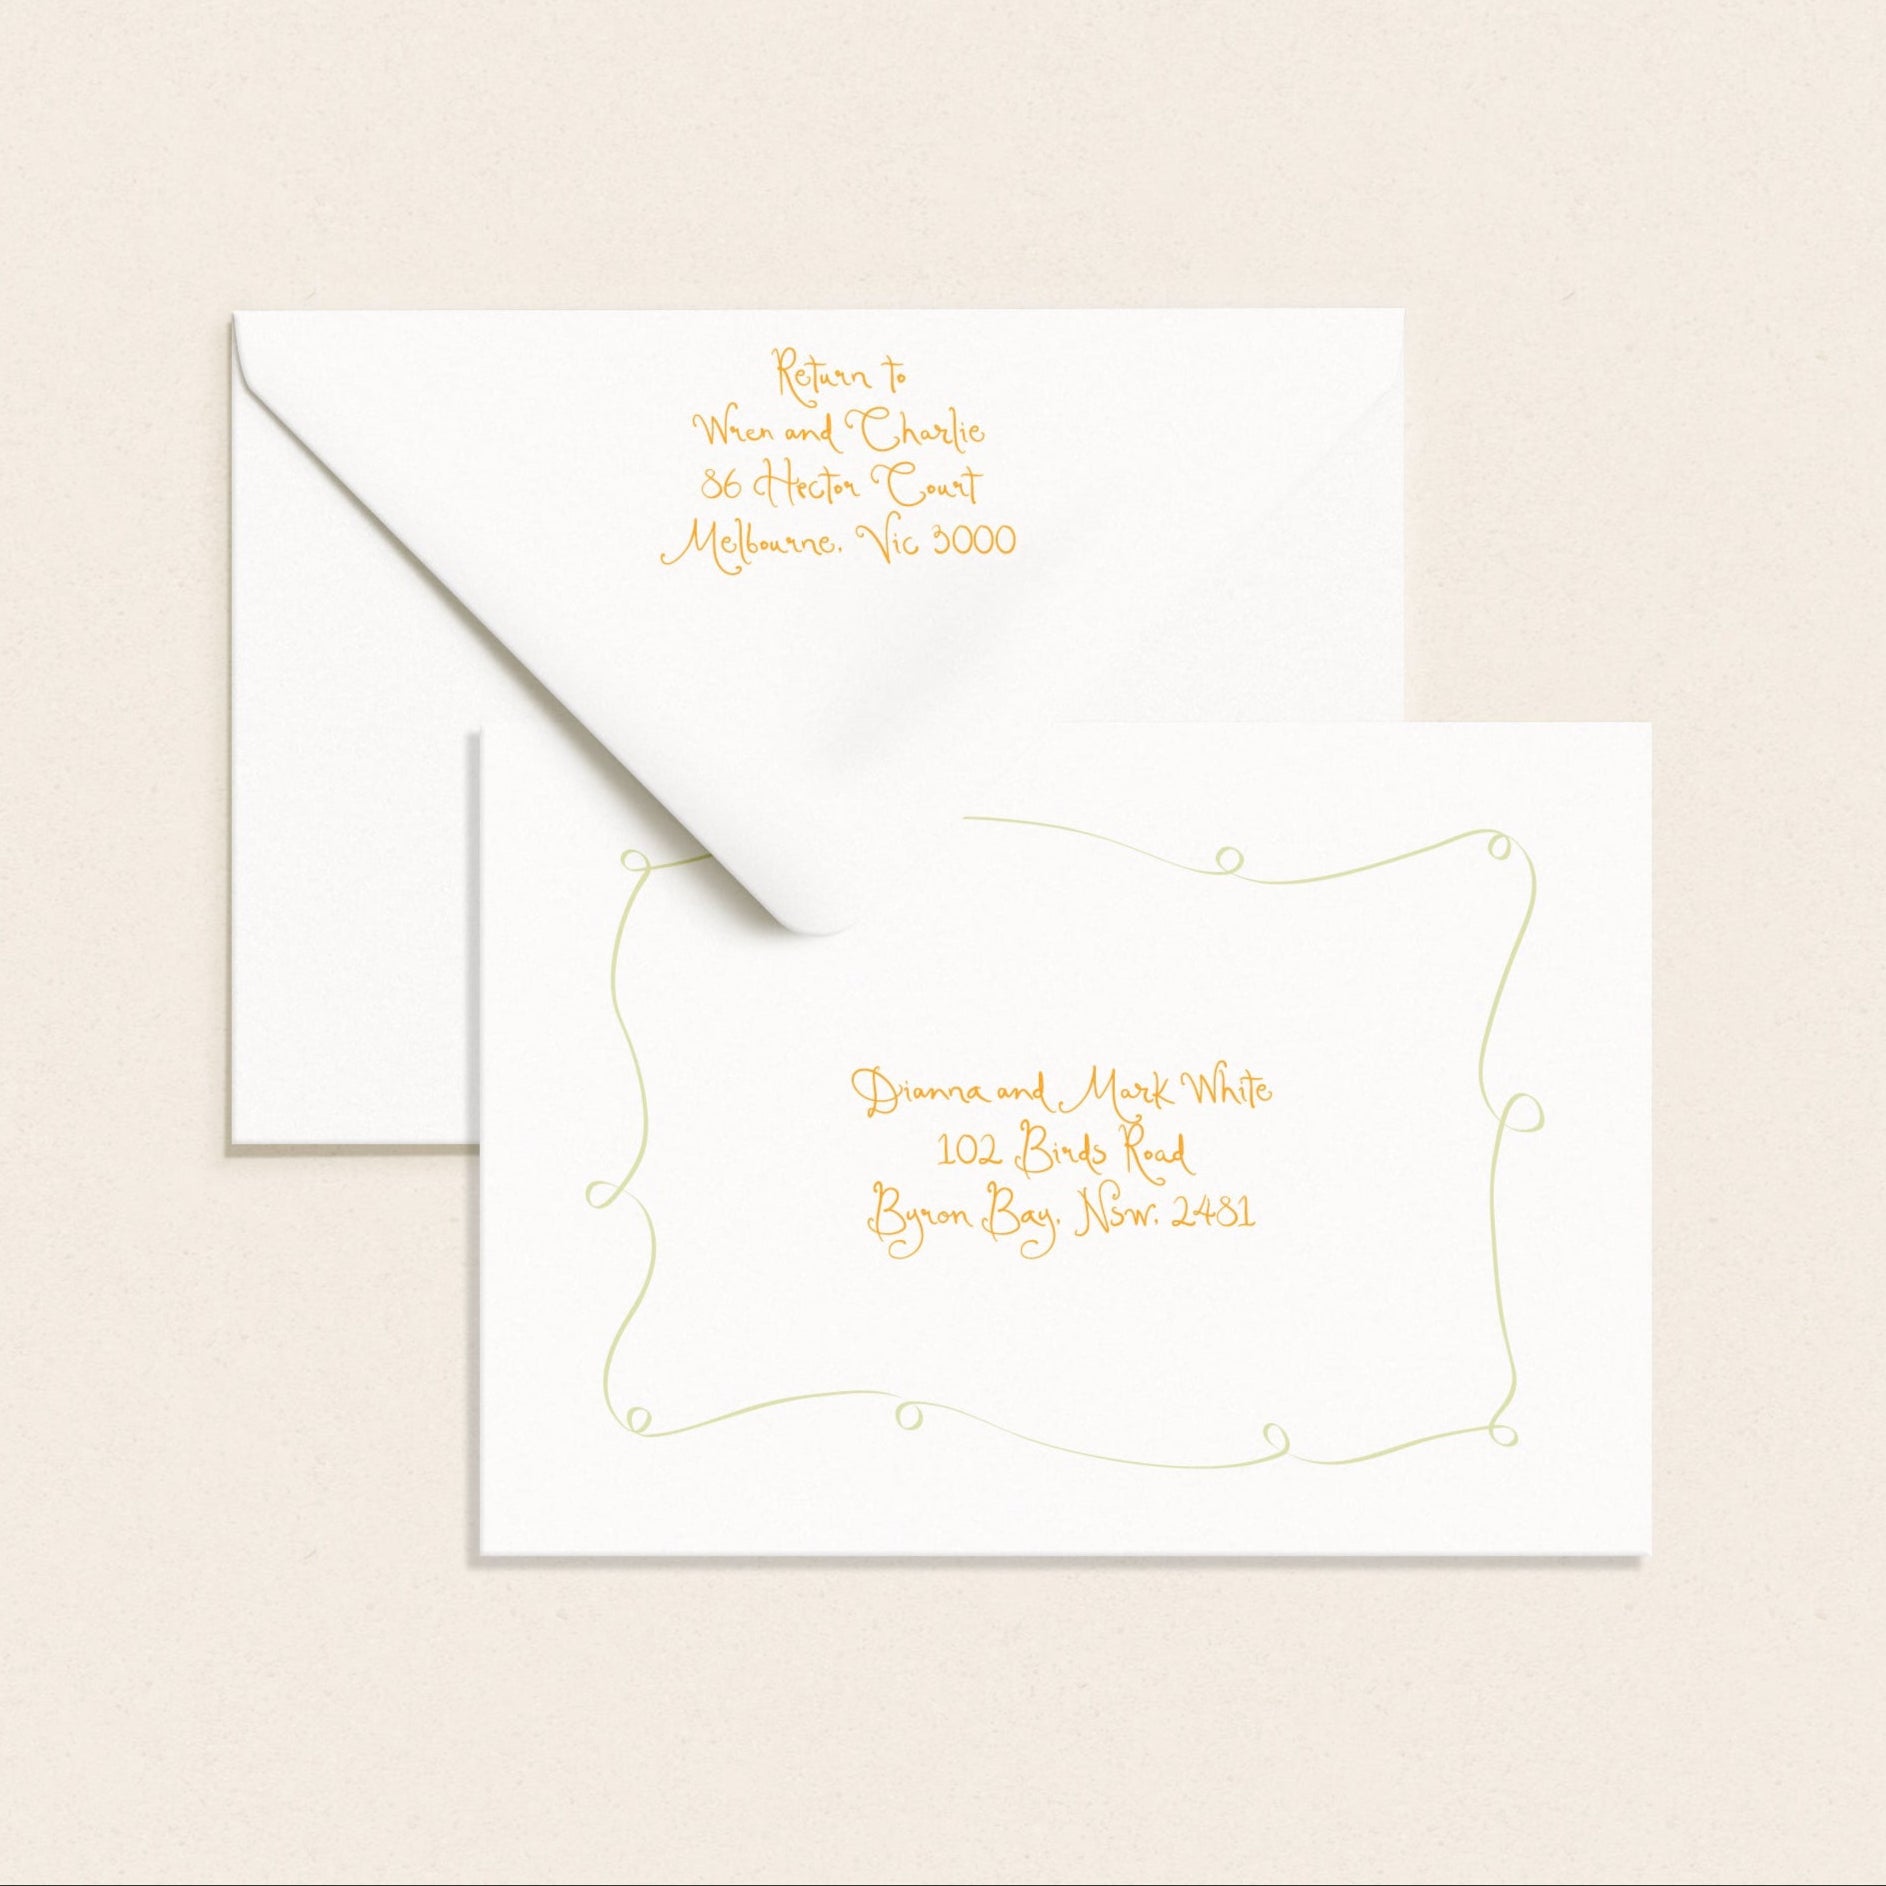 Return to
Wren and Charlie
86 Hector Court
Melbourne, Vic 3000
Dianna and Mark White
102 Birds Road
Byron Bay, Nsw, 2481